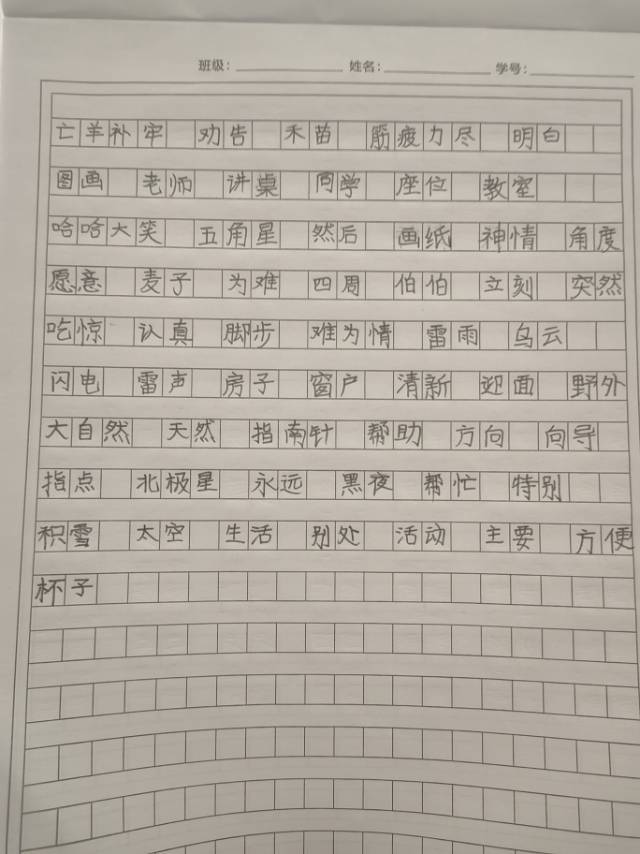 班级： 姓名： 学号：
亡羊补牢 劝告 禾苗 筋疲力尽 明白
图画 老师 讲桌 同学 座位 教室
哈哈大笑 五角星 然后 画纸 神情 角度
愿意 麦子 为难 四周 伯伯 立刻 突然
吃惊 认真 脚步 难为情 雷雨 乌云
闪电 雷声 房子 窗户 清新 迎面 野外
大自然 天然 指南针 帮助 方向 向导
指点 北极星 永远 黑夜 帮忙 特别
积雪 太空 生活 别处 活动 主要 方便
杯子